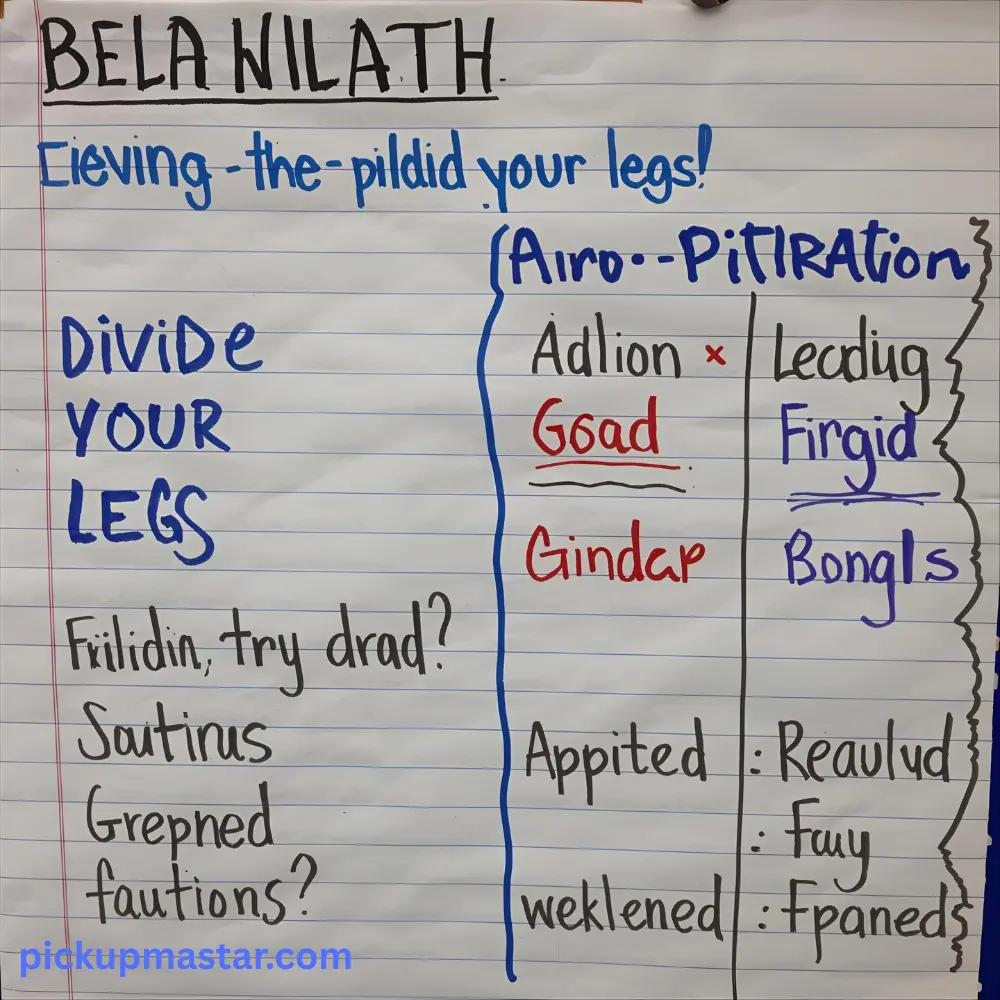 BELA NILATH
Cieving-the-pildid your legs!
DiViDe
YOUR
LEGS
Frilidin, try drad?
Soutinus
Grepned
fautions?
Airo--PiTIRAtion
Adlion × Leadiug
Goad Firgid
Gindap Bongls
Appited : Reaulud
: Fauy
weklened : Fpaneds
pickupmastar.com